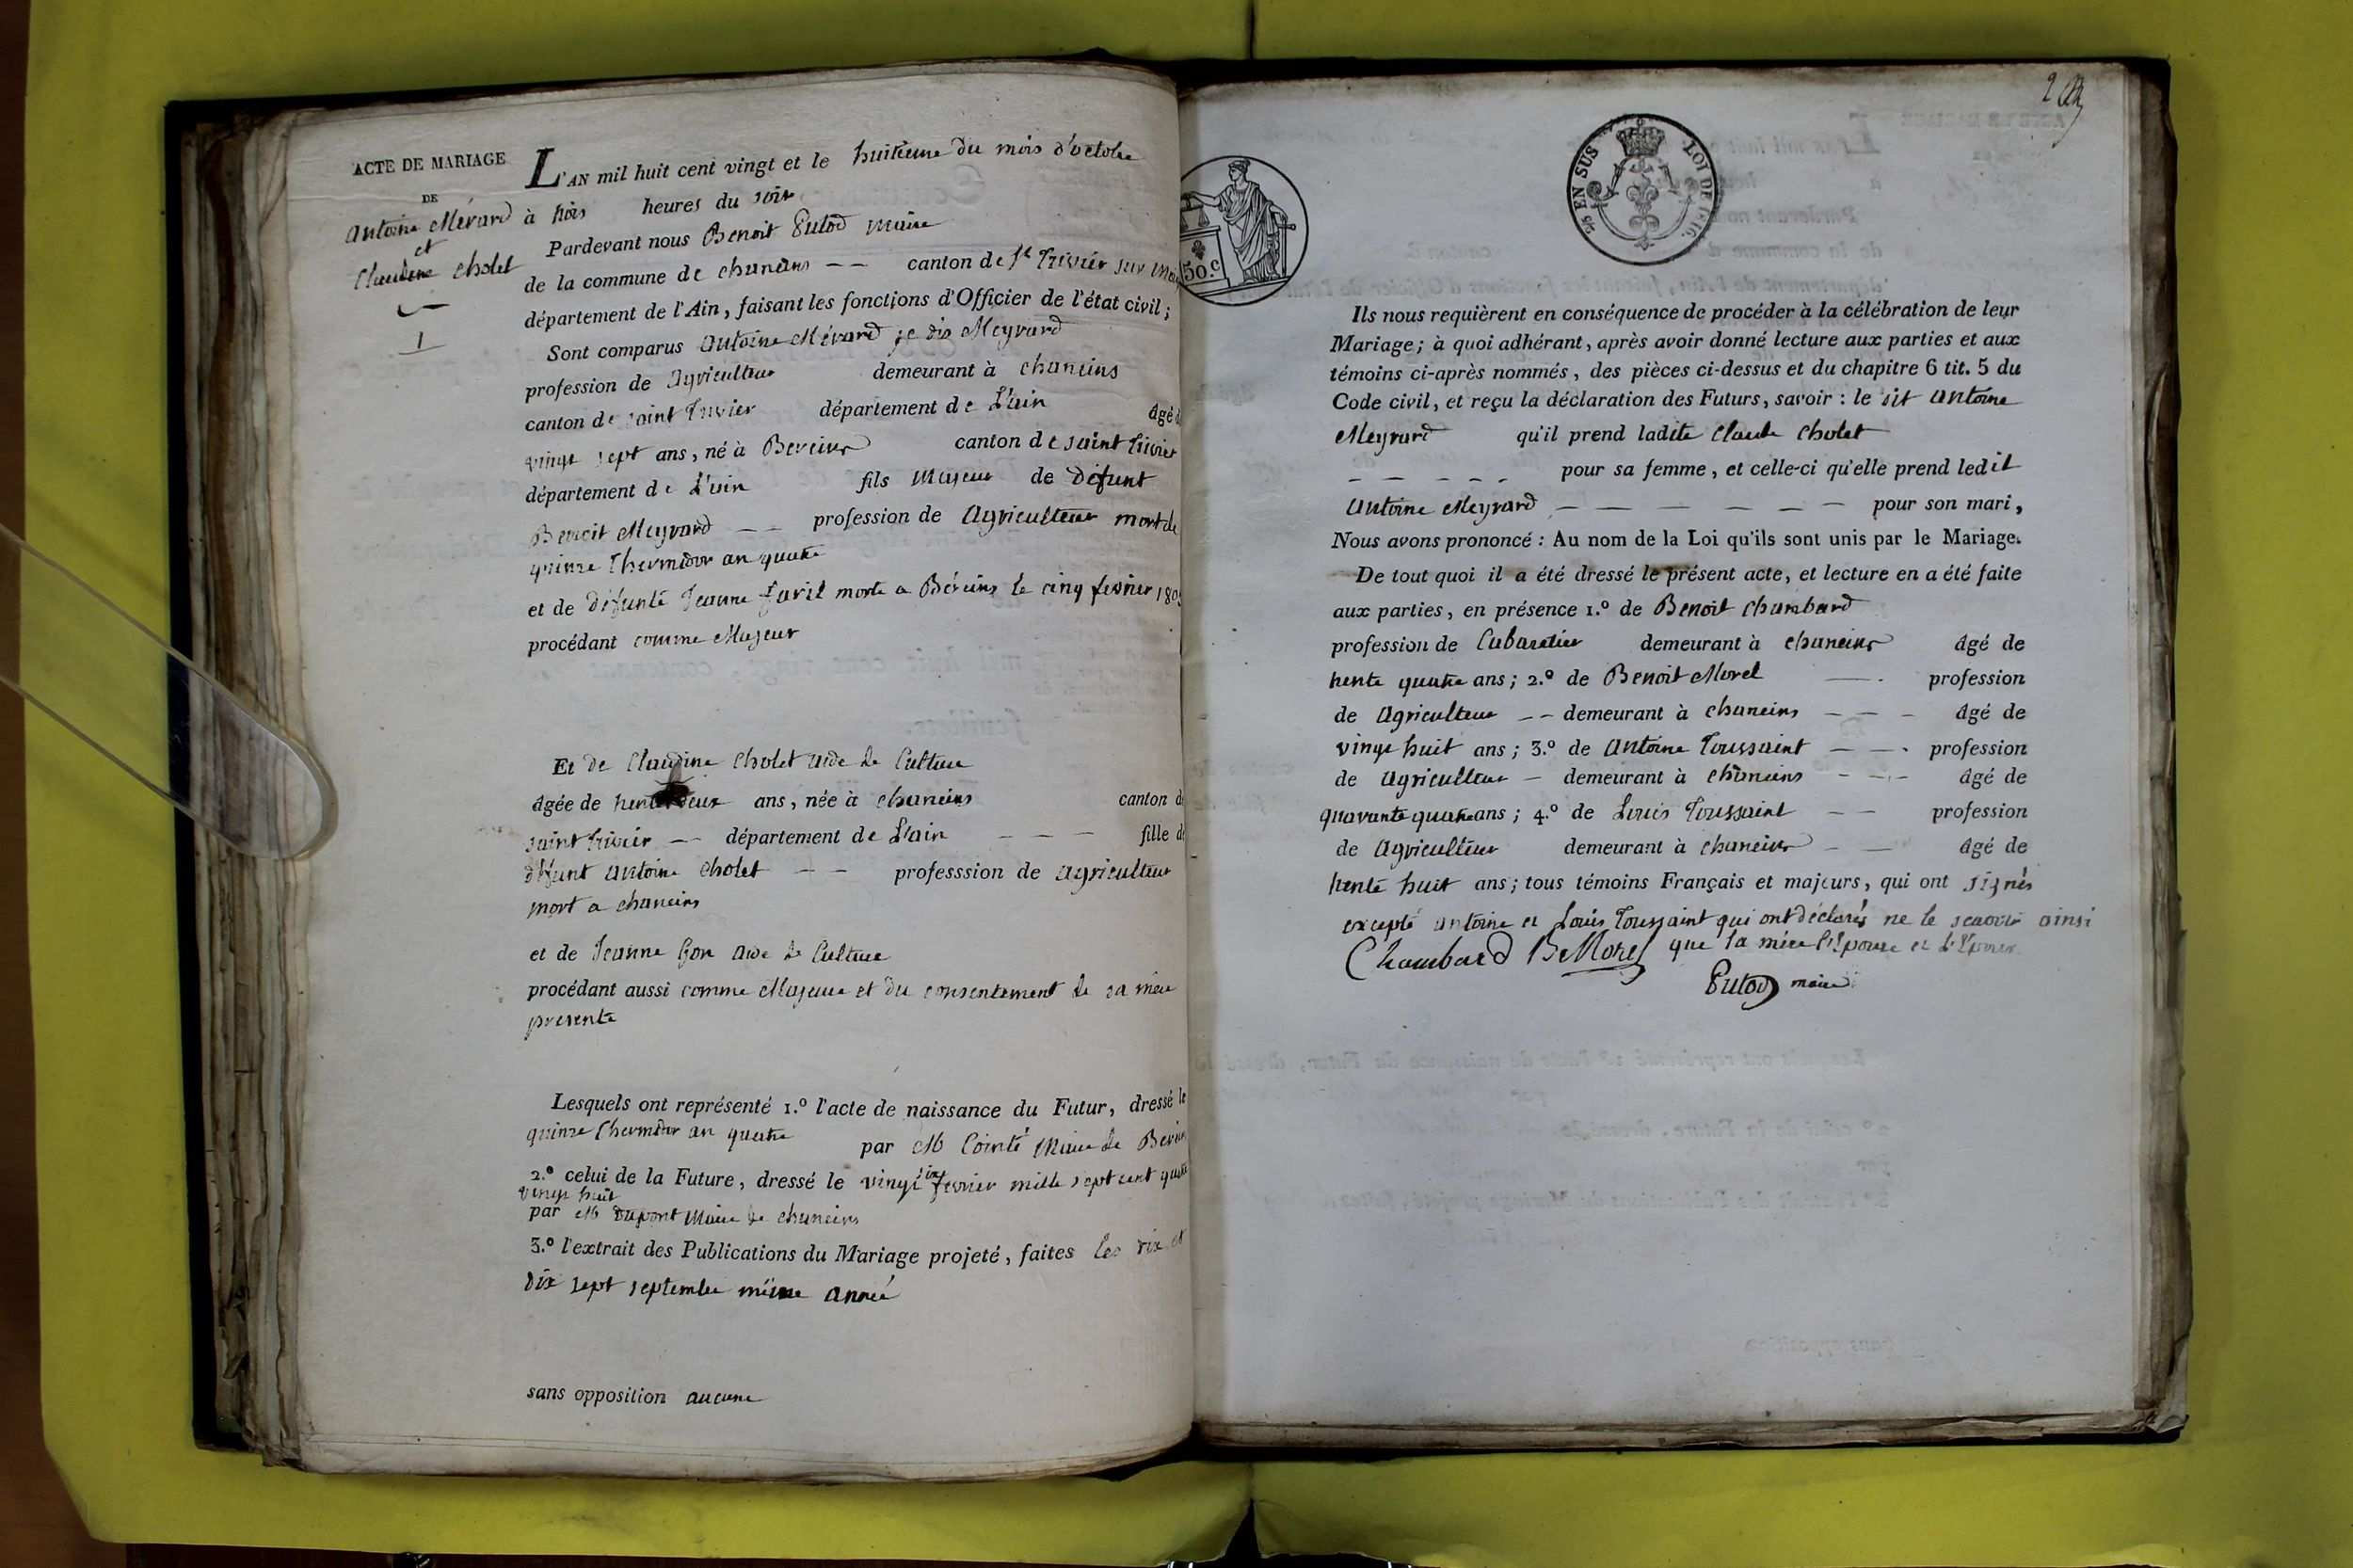 ACTE DE MARIAGE
DE
Antoine Mérard
et
Claudine Cholet
1
L'AN mil huit cent vingt et le huitieme du mois d'octobre
à trois heures du soir
Pardevant nous Benoit Putod maire
de la commune de chaneins -- canton de St Trivier sur
département de l'Ain, faisant les fonctions d'Officier de l'état civil;
Sont comparus Antoine Mérard je dis Meyrard
profession de Agriculteur demeurant à chaneins
canton de saint Trivier département de L'ain âgé
vingt sept ans, né à Bereins canton de saint trivier
département de L'ain fils Majeur de défunt
Benoit Meyrard -- profession de Agriculteur mort le
quinze Thermidor an quatre
et de défunte Jeanne morte a Béreins le cinq fevrier
procédant comme Majeur
Et de Claudine Cholet aide de Culture
âgée de trente deux ans, née à chaneins canton
saint trivier -- département de L'ain --- fille
défunt Antoine Cholet -- professsion de agriculteur
mort a chaneins
et de Jeanne aide de Culture
procédant aussi comme Majeure et du consentement de sa mère
presente
Lesquels ont représenté 1.º l'acte de naissance du Futur, dressé le
quinze Thermidor an quatre par M Cointé Maire de
2.º celui de la Future, dressé le vingt six fevrier mille sept cent quatre
vingt huit
par M Dupont Maire de chaneins
3.º l'extrait des Publications du Mariage projeté, faites les dix et
dix sept septembre même année
sans opposition aucune
50.c
EN SUS LOI DE 1816.
Ils nous requièrent en conséquence de procéder à la célébration de leur
Mariage; à quoi adhérant, après avoir donné lecture aux parties et aux
témoins ci-après nommés, des pièces ci-dessus et du chapitre 6 tit. 5 du
Code civil, et reçu la déclaration des Futurs, savoir : le dit Antoine
Meyrard qu'il prend ladite Claude Cholet
----- pour sa femme, et celle-ci qu'elle prend ledit
Antoine Meyrard ------ pour son mari,
Nous avons prononcé : Au nom de la Loi qu'ils sont unis par le Mariage.
De tout quoi il a été dressé le présent acte, et lecture en a été faite
aux parties, en présence 1.º de Benoit Chambard
profession de Cabaretier demeurant à chaneins âgé de
trente quatre ans; 2.º de Benoit Morel -- profession
de Agriculteur -- demeurant à chaneins --- âgé de
vingt huit ans; 3.º de Antoine Toussaint --- profession
de agriculteur - demeurant à chaneins --- âgé de
quarante quatre ans; 4.º de Louis Toussaint -- profession
de Agriculteur demeurant à chaneins -- âgé de
trente huit ans; tous témoins Français et majeurs, qui ont signés
excepté antoine et Louis Toussaint qui ont déclarés ne le scavoir ainsi
que la mère l'Epouse et l'Epoux
Chambard B Morel
Putod maire